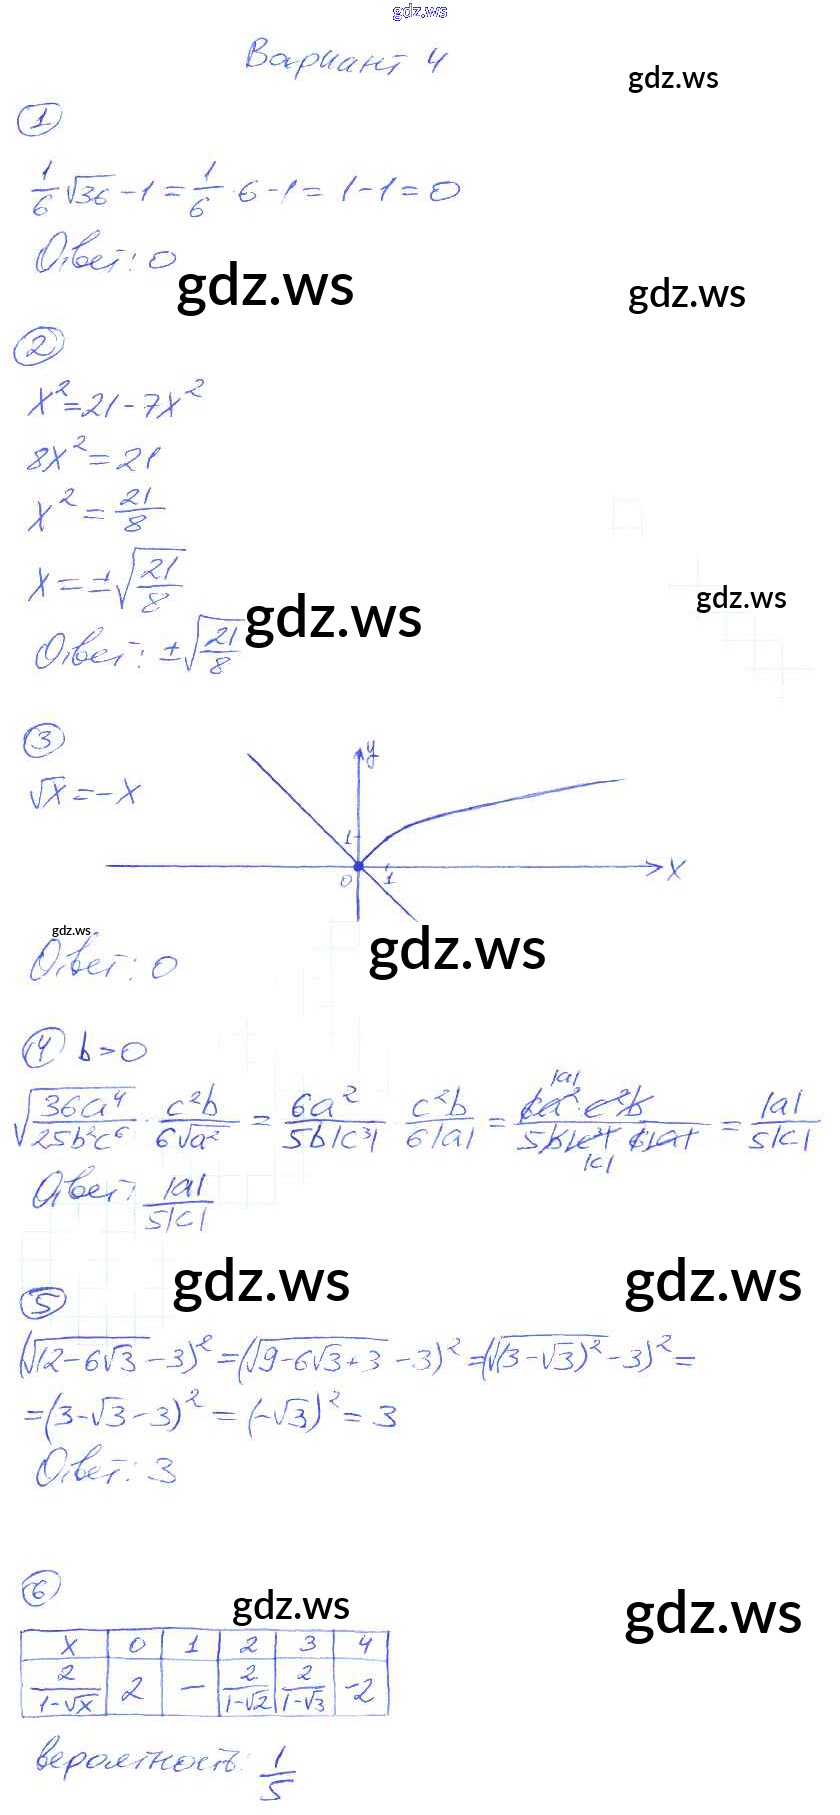 gdz.ws
Вариант 4
gdz.ws
1
1/6 √36 - 1 = 1/6 · 6 - 1 = 1 - 1 = 0
Ответ: 0
gdz.ws
gdz.ws
2
x² = 21 - 7x²
8x² = 21
x² = 21/8
x = ±√(21/8)
gdz.ws
Ответ: ±√(21/8)
gdz.ws
3
√x = -x
y
1
0
1
x
gdz.ws
Ответ: 0
gdz.ws
4 b > 0
√(36a⁴/25b²c⁶) · c²b/6√a² = 6a²/5b|c³| · c²b/6|a| = 6a² · c²b/5b|c³| 6|a| = |a|/5|c|
|a|
|c|
Ответ: |a|/5|c|
gdz.ws
gdz.ws
5
(√(12-6√3) - 3)² = (√(9-6√3+3) - 3)² = (√((3-√3)²) - 3)² =
= (3-√3-3)² = (-√3)² = 3
Ответ: 3
6
gdz.ws
gdz.ws
x 0 1 2 3 4
2/(1-√x) 2 – 2/(1-√2) 2/(1-√3) -2
вероятность: 1/5